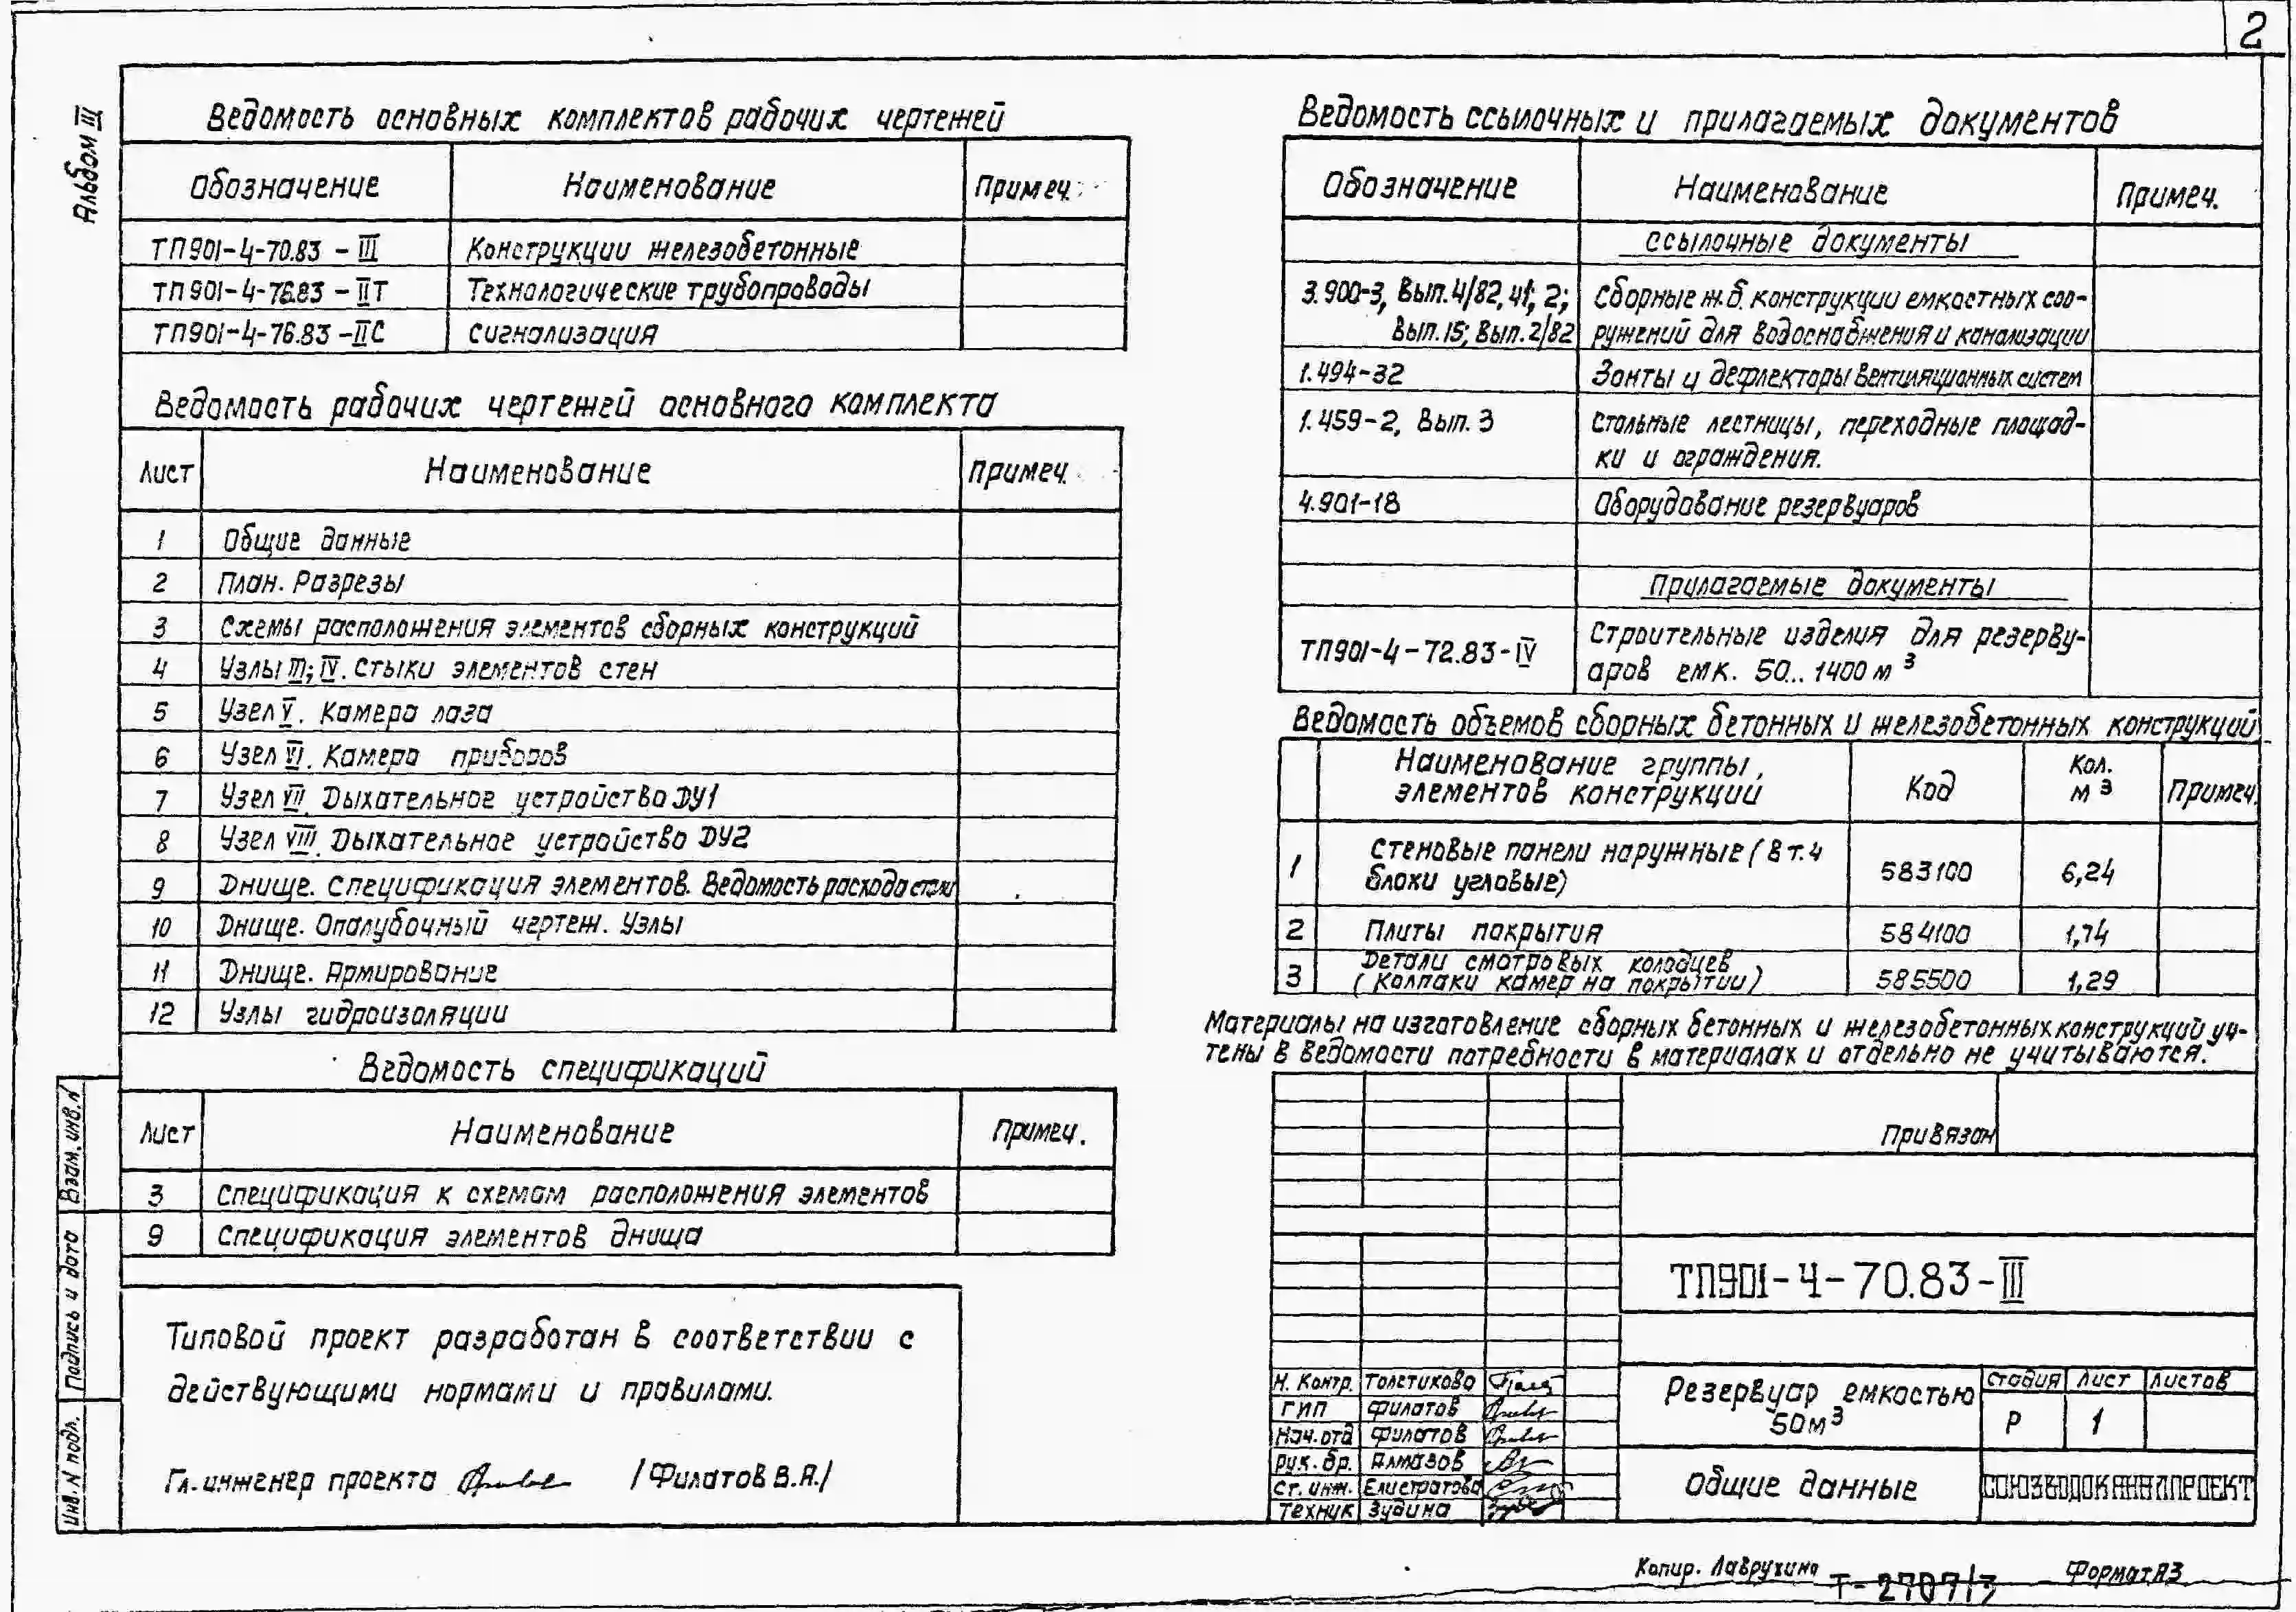 2
Альбом III
Ведомость основных комплектов рабочих чертежей
Обозначение Наименование Примеч.
ТП901-4-70.83 - III Конструкции железобетонные
ТП901-4-76.83 - IIТ Технологические трубопроводы
ТП901-4-76.83 - IIС Сигнализация
Ведомость рабочих чертежей основного комплекта
Лист Наименование Примеч.
1 Общие данные
2 План. Разрезы
3 Схемы расположения элементов сборных конструкций
4 Узлы III; IV. Стыки элементов стен
5 Узел V. Камера лаза
6 Узел VI. Камера приборов
7 Узел VII. Дыхательное устройство ДУ1
8 Узел VIII. Дыхательное устройство ДУ2
9 Днище. Спецификация элементов. Ведомость расхода стали
10 Днище. Опалубочный чертеж. Узлы
11 Днище. Армирование
12 Узлы гидроизоляции
Ведомость спецификаций
Лист Наименование Примеч.
3 Спецификация к схемам расположения элементов
9 Спецификация элементов днища
Типовой проект разработан в соответствии с
действующими нормами и правилами.
Гл. инженер проекта /Филатов В.Я./
Взам. инв. N
Подпись и дата
Инв. N подл.
Ведомость ссылочных и прилагаемых документов
Обозначение Наименование Примеч.
Ссылочные документы
3.900-3, Вып. 4/82, ч1, 2; Сборные ж.б. конструкции емкостных соо-
Вып. 15; Вып. 2/82 ружений для водоснабжения и канализации
1.494-32 Зонты и дефлекторы вентиляционных систем
1.459-2, Вып. 3 Стальные лестницы, переходные площад-
ки и ограждения.
4.901-18 Оборудование резервуаров
Прилагаемые документы
ТП901-4-72.83-IV Строительные изделия для резерву-
аров емк. 50...1400 м³
Ведомость объемов сборных бетонных и железобетонных конструкций
Наименование группы, элементов конструкции Код Кол. м³ Примеч.
1 Стеновые панели наружные (в т.ч
блоки угловые) 583100 6,24
2 Плиты покрытия 584100 1,74
3 Детали смотровых колодцев
(Колпаки камер на покрытии) 585500 1,29
Материалы на изготовление сборных бетонных и железобетонных конструкций уч-
тены в ведомости потребности в материалах и отдельно не учитываются.
Привязан
ТП901-4-70.83-III
Н. Контр. Толстихова
ГИП Филатов
Нач. отд Филатов
Рук. бр. Алмазов
Ст. инж. Елистратова
Техник Зудина
Резервуар емкостью
50 м³
Стадия Лист Листов
Р 1
Общие данные
СОЮЗВОДОКАНАЛПРОЕКТ
Копир. Лаврухина Т-2707/3 Формат А3